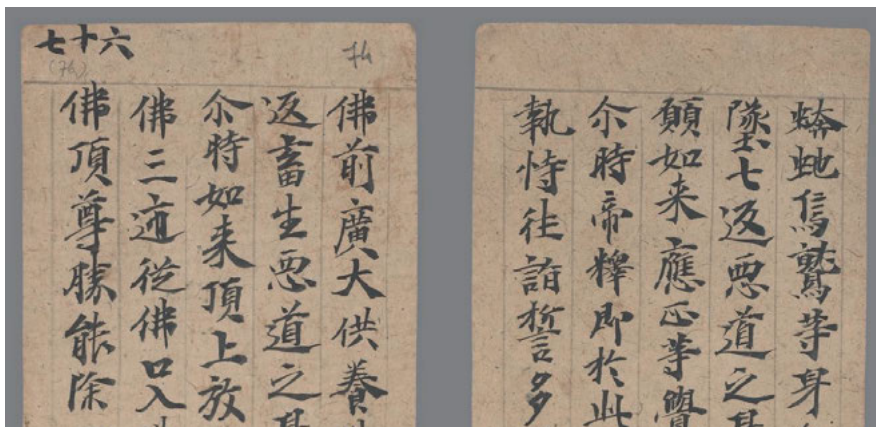 蟒虵烏鷲等身
墜七返惡道之身
願如来應正等覺
尒時帝釋即於此
執持往詣誓多
七十六
74
佛前廣大供養
返畜生惡道之身
尒時如来頂上放
佛三迊從佛口入
佛頂尊勝能除